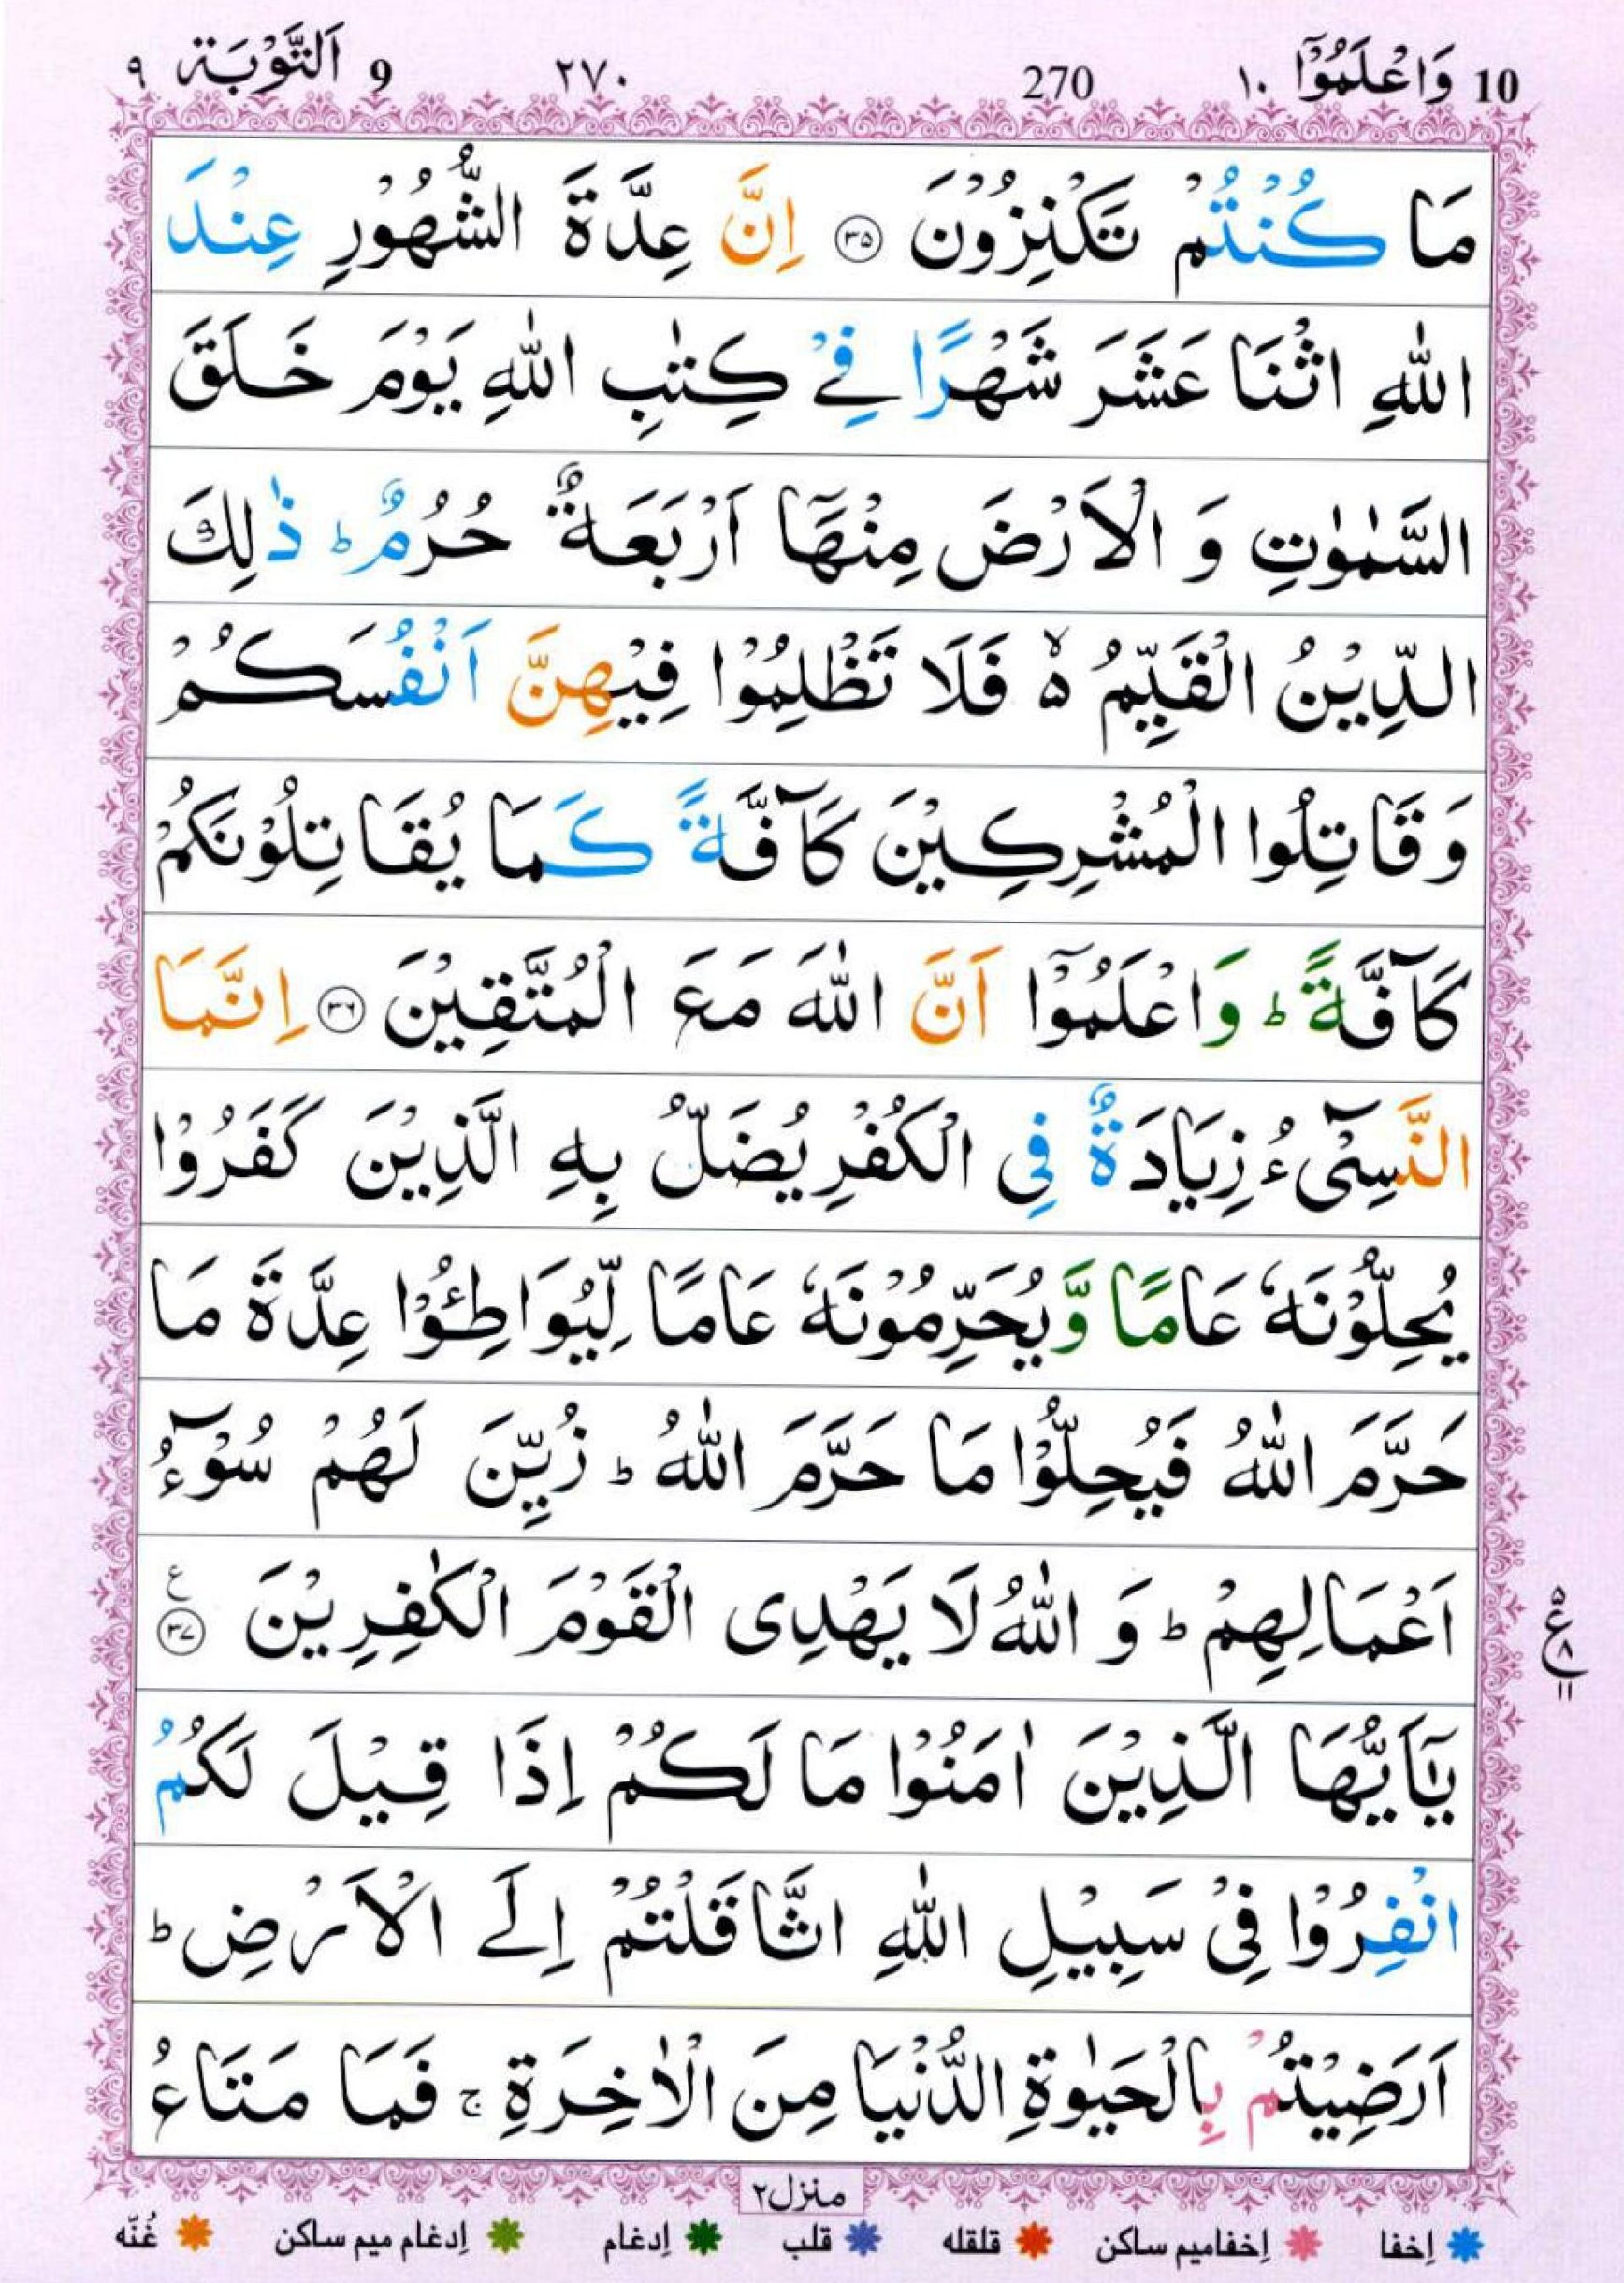 10 وَاعْلَمُوْٓا ١٠ 270 ٢٧٠ 9 اَلتَّوْبَة ٩
مَا كُنْتُمْ تَكْنِزُوْنَ ۝۳۵ اِنَّ عِدَّةَ الشُّهُوْرِ عِنْدَ
اللّٰهِ اثْنَا عَشَرَ شَهْرًا فِیْ كِتٰبِ اللّٰهِ يَوْمَ خَلَقَ
السَّمٰوٰتِ وَ الْاَرْضَ مِنْهَآ اَرْبَعَةٌ حُرُمٌ ؕ ذٰلِكَ
الدِّيْنُ الْقَيِّمُ ۙ۬ فَلَا تَظْلِمُوْا فِيْهِنَّ اَنْفُسَكُمْ
وَقَاتِلُوا الْمُشْرِكِيْنَ كَآفَّةً كَمَا يُقَاتِلُوْنَكُمْ
كَآفَّةً ؕ وَاعْلَمُوْٓا اَنَّ اللّٰهَ مَعَ الْمُتَّقِيْنَ ۝۳۶ اِنَّمَا
النَّسِیْٓءُ زِيَادَةٌ فِی الْكُفْرِ يُضَلُّ بِهِ الَّذِيْنَ كَفَرُوْا
يُحِلُّوْنَهٗ عَامًا وَّيُحَرِّمُوْنَهٗ عَامًا لِّيُوَاطِئُوْا عِدَّةَ مَا
حَرَّمَ اللّٰهُ فَيُحِلُّوْا مَا حَرَّمَ اللّٰهُ ؕ زُيِّنَ لَهُمْ سُوْٓءُ
اَعْمَالِهِمْ ؕ وَ اللّٰهُ لَا يَهْدِی الْقَوْمَ الْكٰفِرِيْنَ ۝۳۷ ع
۵ ع ۸ ۱۱
يٰٓاَيُّهَا الَّذِيْنَ اٰمَنُوْا مَا لَكُمْ اِذَا قِيْلَ لَكُمُ
انْفِرُوْا فِیْ سَبِيْلِ اللّٰهِ اثَّاقَلْتُمْ اِلَی الْاَرْضِ ؕ
اَرَضِيْتُمْ بِالْحَيٰوةِ الدُّنْيَا مِنَ الْاٰخِرَةِ ۚ فَمَا مَتَاعُ
منزل۲
اِخفا اِخفامیم ساکن قلقله قلب اِدغام اِدغام میم ساکن غُنّه